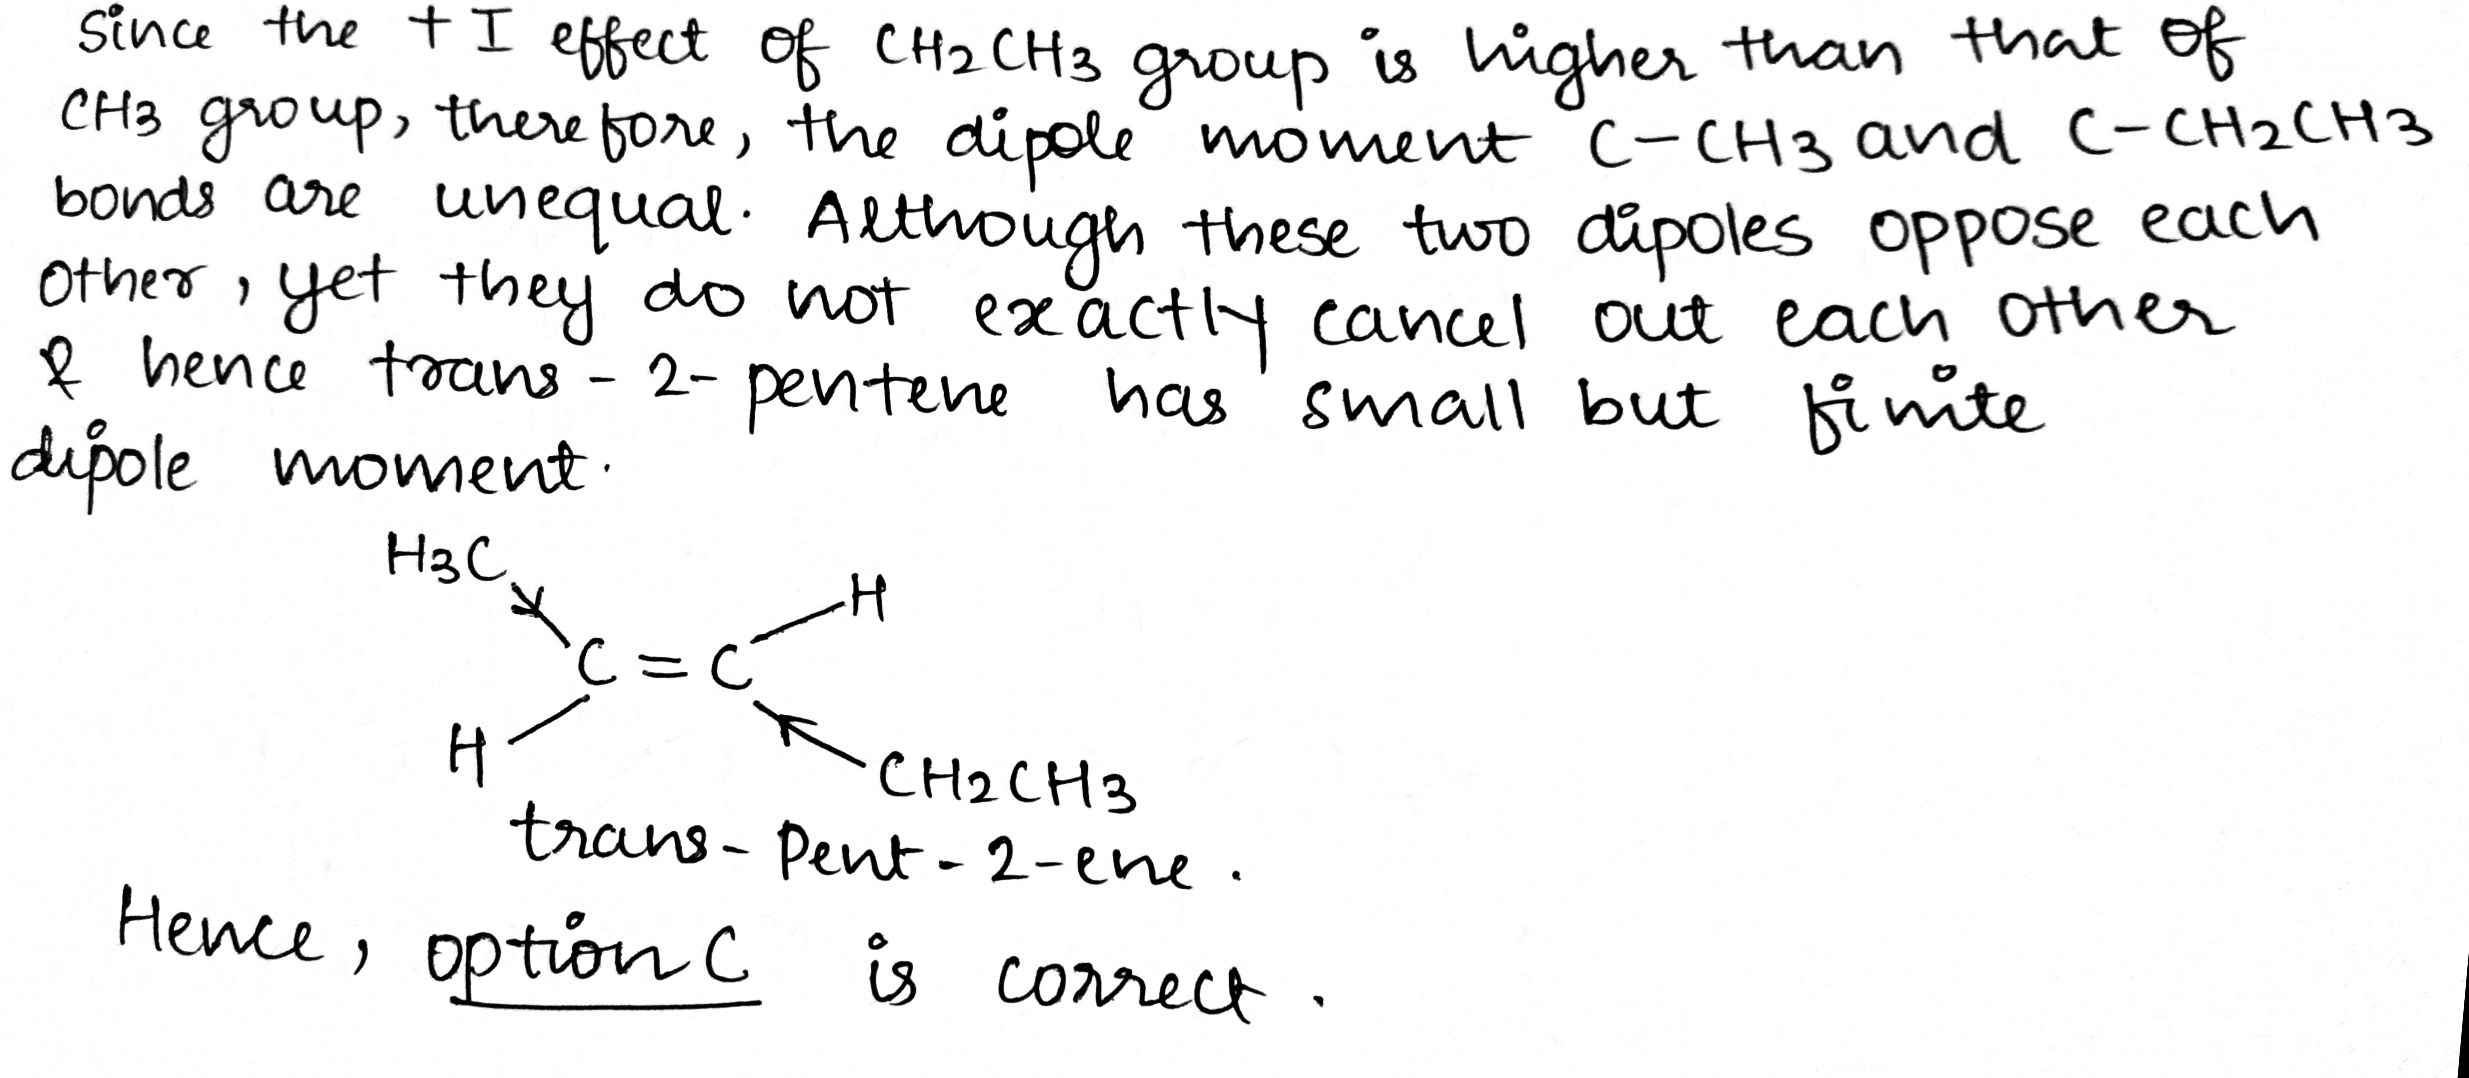 Since the + I effect of CH2CH3 group is higher than that of
CH3 group, therefore, the dipole moment C-CH3 and C-CH2CH3
bonds are unequal. Although these two dipoles oppose each
other, yet they do not exactly cancel out each other
& hence trans-2-pentene has small but finite
dipole moment.
H3C H
C = C
H CH2CH3
trans-Pent-2-ene.
Hence, option C is correct.